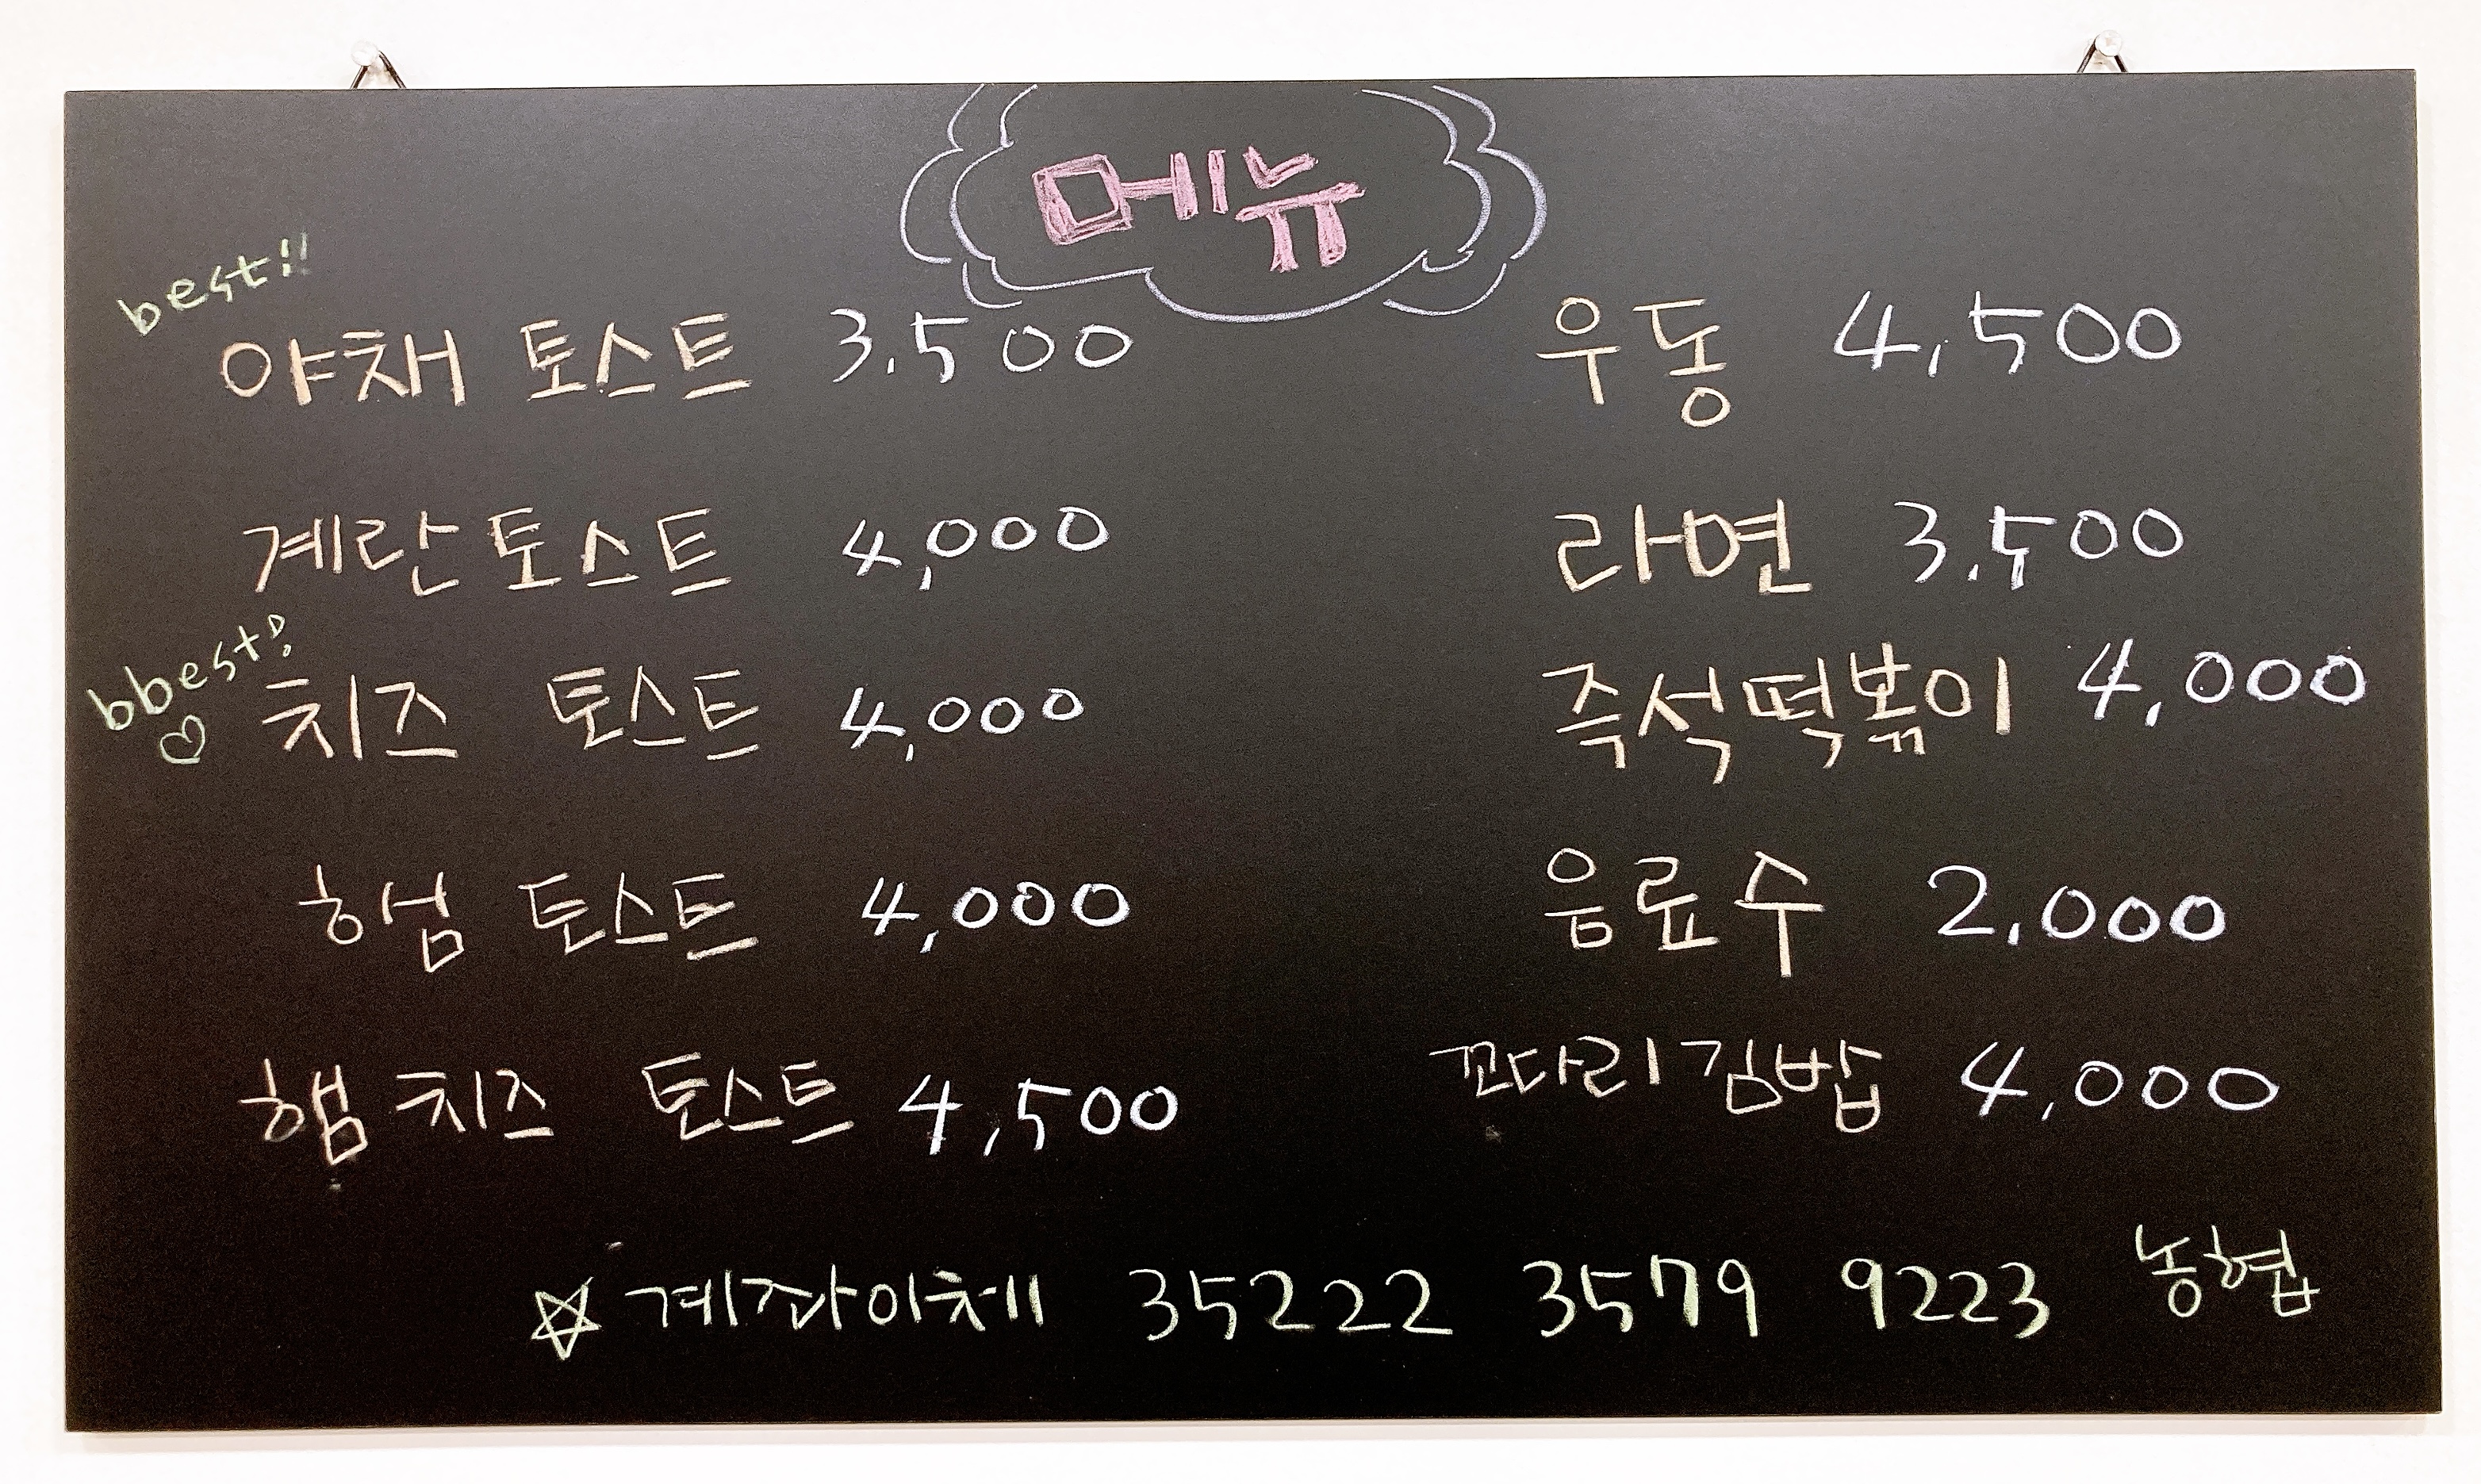 메뉴
best!!
야채 토스트 3,500
계란토스트 4,000
bbest!
치즈 토스트 4,000
햄 토스트 4,000
햄치즈 토스트 4,500
우동 4,500
라면 3,500
즉석떡볶이 4,000
음료수 2,000
꼬다리김밥 4,000
☆ 계좌이체 35222 3579 9223 농협